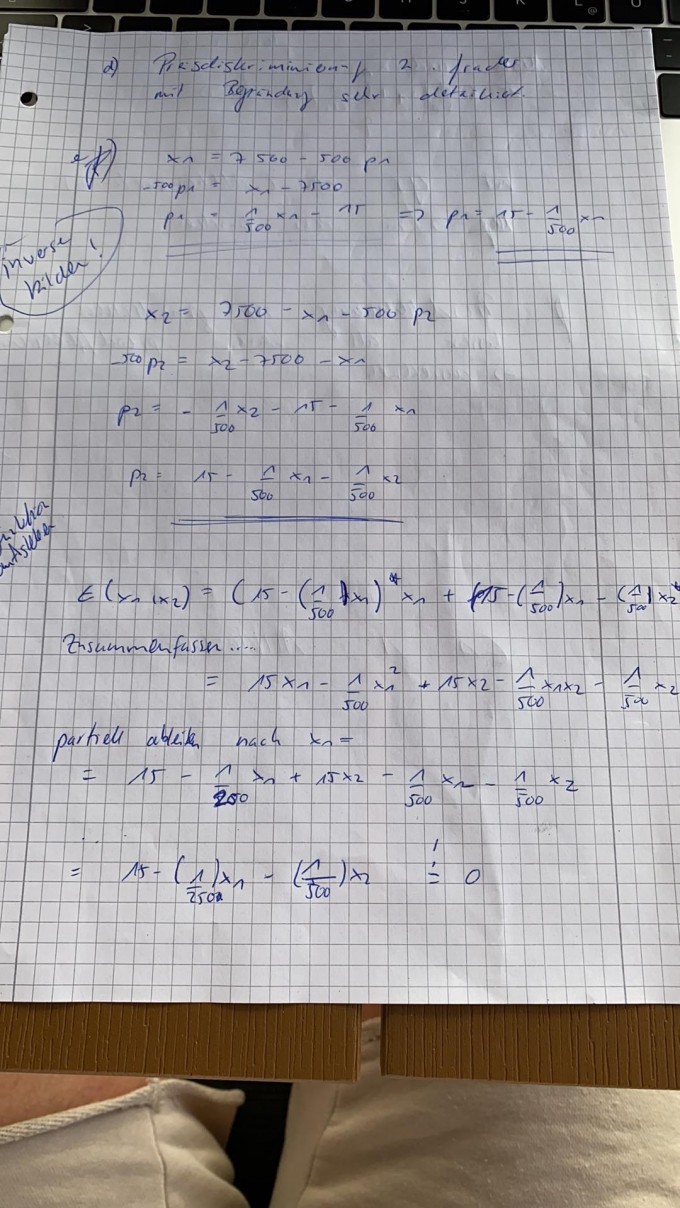 d) Preisdiskriminierung 2. Grades
mit Begründung sehr detailliert.
x1 = 7500 - 500 p1
-500p1 = x1 - 7500
p1 = 1/500 x1 - 15 => p1 = 15 - 1/500 x1
inverse
bilden!
x2 = 7500 - x1 - 500 p2
-500p2 = x2 - 7500 - x1
p2 = - 1/500 x2 - 15 - 1/500 x1
p2 = 15 - 1/500 x1 - 1/500 x2
E(x1,x2) = (15 - (1/500)x1)*x1 + (15 - (1/500)x1 - (1/500)x2*
Zusammenfassen ....
= 15x1 - 1/500 x1² + 15x2 - 1/500 x1x2 - 1/500 x2
partiell ableiten nach x1 =
= 15 - 1/250 x1 + 15x2 - 1/500 x2 - 1/500 x2
= 15 - (1/250)x1 - (1/500)x2 != 0